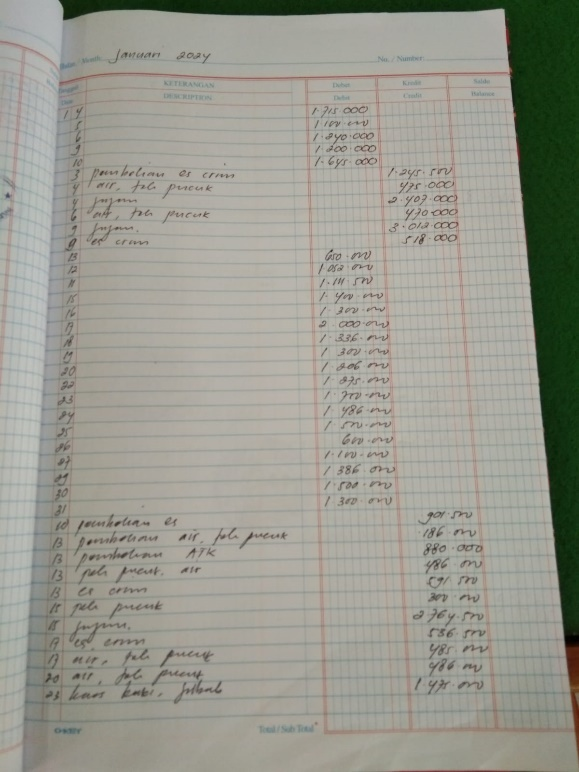 Bulan / Month: Januari 2024 No. / Number:
Tanggal KETERANGAN Debet Kredit Saldo
Date DESCRIPTION Debet Credit Balance
1 4 1.715.000
5 1.100.000
6 1.240.000
9 1.200.000
10 1.645.000
3 pembelian es crim 1.245.500
4 air, teh pucuk 475.000
4 jajan 2.407.000
6 air, teh pucuk 470.000
9 jajan. 3.012.000
9 es crim 518.000
13 650.000
12 1.052.000
11 1.111.500
15 1.400.000
16 1.300.000
17 2.000.000
18 1.336.000
19 1.300.000
20 1.206.000
22 1.275.000
23 1.700.000
24 1.486.000
25 1.500.000
26 600.000
27 1.100.000
29 1.386.000
30 1.500.000
31 1.300.000
10 pembelian es 901.500
13 pembelian air, teh pucuk 186.000
13 pembelian ATK 880.000
13 teh pucuk, air 486.000
13 es crim 591.500
15 teh pucuk 300.000
15 jajan. 2.764.500
17 es crim 536.500
17 air, teh pucuk 485.000
20 air, teh pucuk 486.000
23 kaos kaki, jilbab 1.475.000
Total / Sub Total